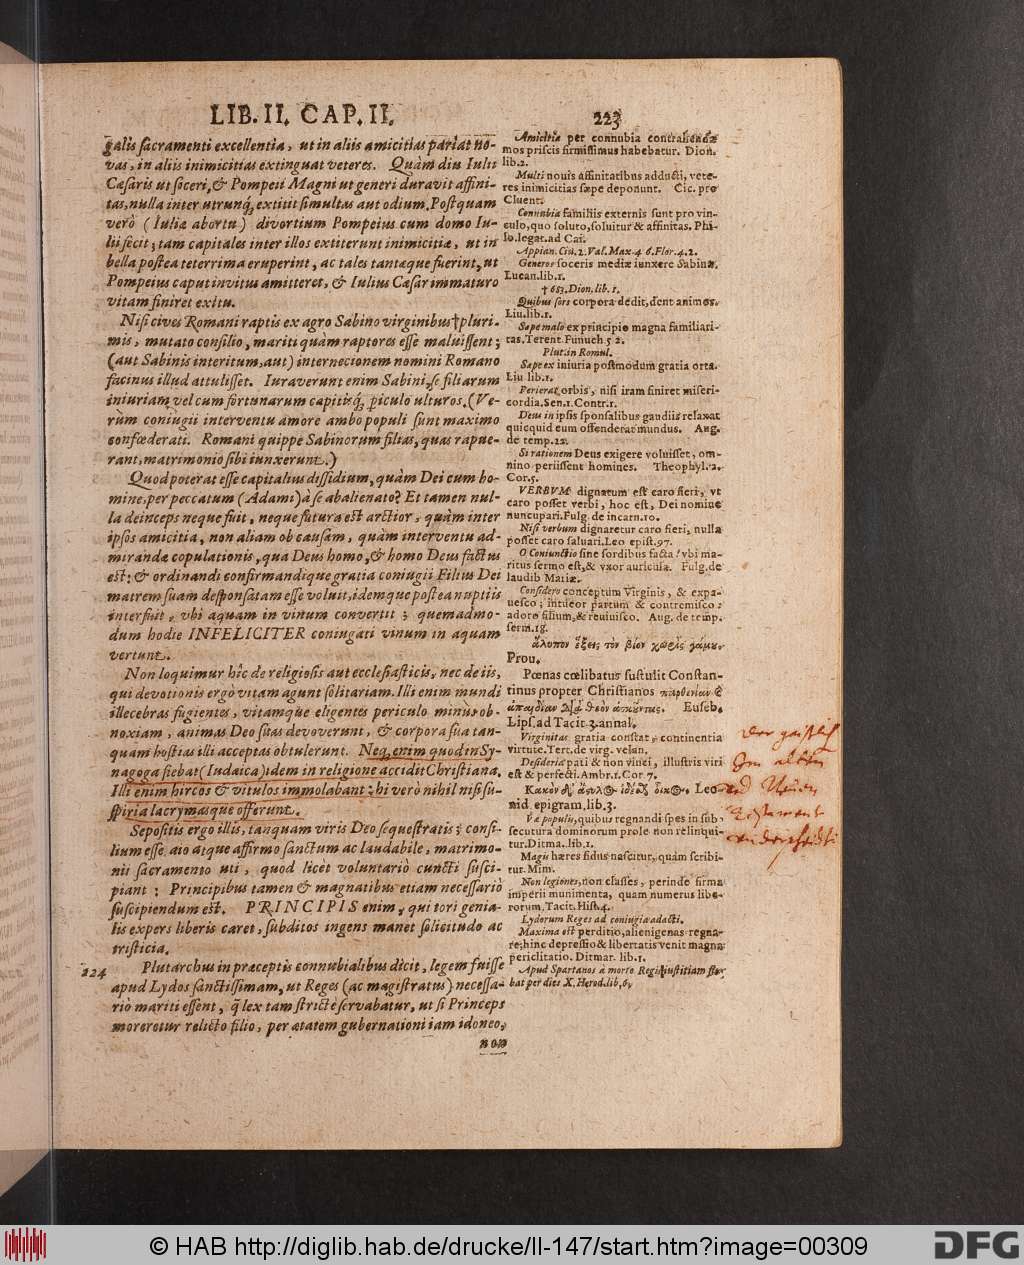 LIB. II. CAP. II. 223
galis sacramenti excellentia, ut in aliis amicitias pariat no-
vas, in aliis inimicitias extinguat veteres. Quàm diu Iulii
Cæsaris ut soceri, & Pompeii Magni ut generi duravit affini-
tas, nulla inter utrunq́, extitit simultas aut odium. Postquam
verò (Iuliæ abortu) divortium Pompeius cum domo Iu-
lii fecit; tam capitales inter illos extiterunt inimicitiæ, ut in
bella postea teterrima eruperint, ac tales tantæque fuerint, ut
Pompeius caput invitus amitteret, & Iulius Cæsar immaturo
vitam finiret exitu.
Nisi cives Romani raptis ex agro Sabino virginibus † pluri-
mis, mutato consilio, mariti quàm raptores esse maluissent;
(aut Sabinis interitum, aut) internecionem nomini Romano
facinus illud attulisset. Iuraverunt enim Sabini, se filiarum
iniuriam vel cum fortunarum capitisq́, periculo ulturos. (Ve-
rùm coniugii interventu amore ambo populi sunt maximo
confœderati. Romani quippe Sabinorum filias, quas rapue-
rant, matrimonio sibi iunxerunt.)
Quod poterat esse capitalius dissidium, quàm Dei cum ho-
mine, per peccatum (Adami) à se abalienato? Et tamen nul-
la deinceps neque fuit, neque futura est arctior, quàm inter
ipsos amicitia, non aliam ob causam, quàm interventu ad-
mirandæ copulationis, qua Deus homo, & homo Deus factus
est: & ordinandi confirmandique gratia coniugii Filius Dei
matrem suam desponsatam esse voluit, idemque postea nuptiis
interfuit, vbi aquam in vinum convertit; quemadmo-
dum hodie INFELICITER coniugati vinum in aquam
vertunt.
Non loquimur hîc de religiosis aut ecclesiasticis, nec de iis,
qui devotionis ergò vitam agunt solitariam. Illi enim mundi
illecebras fugientes, vitamque eligentes periculo minùs ob-
noxiam, animas Deo suas devoverunt, & corpora sua tan-
quam hostias illi acceptas obtulerunt. Neq, enim quod in Sy-
nagoga fiebat (Iudaica) idem in religione accidit Christiana.
Illi enim hircos & vitulos immolabant; hi verò nihil nisi su-
spiria lacrymasque offerunt.
Sepositis ergo illis, tanquam viris Deo sequestratis; consi-
lium esse aio atque affirmo sanctum ac laudabile, matrimo-
nii sacramento uti, quod licèt voluntariò cuncti susci-
piant; Principibus tamen & magnatibus etiam necessariò
suscipiendum est. PRINCIPIS enim, qui tori genia-
lis expers liberis caret, subditos ingens manet solicitudo ac
tristicia.
224 Plutarchus in præceptis connubialibus dicit, legem fuisse
apud Lydos sanctissimam, ut Reges (ac magistratus) necessa-
riò mariti essent, q̃ lex tam strictè servabatur, ut si Princeps
moreretur relicto filio, per ætatem gubernationi iam idoneo,
non
Amicitia per connubia contrahendæ
mos priscis firmissimus habebatur. Dion.
lib.2.
Multi novis affinitatibus adducti, vete-
res inimicitias sæpe deponunt. Cic. pro
Cluent.
Connubia familiis externis sunt pro vin-
culo, quo soluto, solvitur & affinitas. Phi-
lo. legat. ad Cai.
Appian. Civ. 2. Val. Max. 4. 6. Flor. 4. 2.
Generos soceris mediæ iunxere Sabinæ.
Lucan. lib. 1.
† 683. Dion. lib. 1.
Quibus fors corpora dedit, dent animos.
Liu. lib. 1.
Sæpe malo ex principio magna familiari-
tas. Terent. Eunuch. 5 2.
Plut. in Romul.
Sæpe ex iniuria postmodum gratia orta.
Liu lib. 1.
Perierat orbis, nisi iram finiret miseri-
cordia. Sen. 1. Contr. 1.
Deus in ipsis sponsalibus gaudiis relaxat
quicquid eum offenderat mundus. Aug.
de temp. 12.
Si rationem Deus exigere voluisset, om-
nino periissent homines. Theophyl. 2.
Cor. 5.
VERBVM dignatum est caro fieri, vt
caro posset verbi, hoc est, Dei nomine
nuncupari. Fulg. de incarn. 10.
Nisi verbum dignaretur caro fieri, nulla
posset caro salvari. Leo epist. 97.
O Coniunctio sine sordibus facta! vbi ma-
ritus sermo est, & vxor auricula. Fulg. de
laudib Mariæ.
Considero conceptum Virginis, & expa-
uesco; intueor partum & contremisco:
adoro filium, & reuiuisco. Aug. de temp.
serm. 18.
ἄλυπον ἕξεις τὸν βίον χωρὶς γάμου.
Prou.
Pœnas cœlibatus sustulit Constan-
tinus propter Christianos παρθενίαν &
ἀπαιδίαν διὰ θεὸν ἀσκοῦντας. Euseb.
Lips. ad Tacit. 3. annal.
Virginitas gratia constat, continentia
virtute. Tert. de virg. velan.
Desideria pati & non vinci, illustris viri
est & perfecti. Ambr. 1. Cor 7.
Leo-
nid. epigram. lib. 3.
Væ populis, quibus regnandi spes in sub-
secutura dominorum prole non relinqui-
tur. Ditma. lib. 1.
Magis hæres fidus nascitur, quàm scribi-
tur. Mim.
Non legiones, non classes, perinde firma
imperii munimenta, quam numerus libe-
rorum. Tacit. Hist. 4.
Lydorum Reges ad coniugia adacti.
Maxima est perditio, alienigenas regna-
re; hinc depressio & libertatis venit magna
periclitatio. Ditmar. lib. 1.
Apud Spartanos à morte Regis iustitiam ster-
bat per dies X. Herod. lib. 6.
In alten
Testament
© HAB http://diglib.hab.de/drucke/ll-147/start.htm?image=00309
DFG